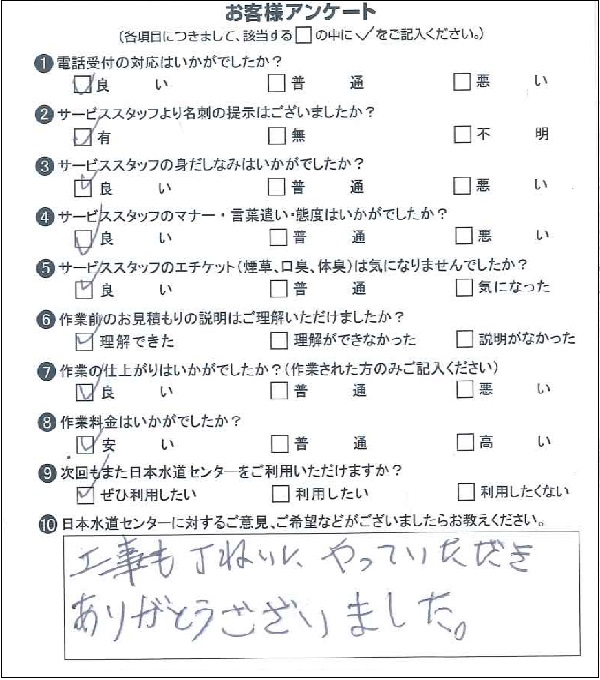 お客様アンケート
(各項目につきまして、該当する□の中に✓をご記入ください。)
❶ 電話受付の対応はいかがでしたか?
☑良い □普通 □悪い
❷ サービススタッフより名刺の提示はございましたか?
☑有 □無 □不明
❸ サービススタッフの身だしなみはいかがでしたか?
☑良い □普通 □悪い
❹ サービススタッフのマナー・言葉遣い・態度はいかがでしたか?
☑良い □普通 □悪い
❺ サービススタッフのエチケット(煙草、口臭、体臭)は気になりませんでしたか?
☑良い □普通 □気になった
❻ 作業前のお見積もりの説明はご理解いただけましたか?
☑理解できた □理解ができなかった □説明がなかった
❼ 作業の仕上がりはいかがでしたか?(作業された方のみご記入ください)
☑良い □普通 □悪い
❽ 作業料金はいかがでしたか?
☑安い □普通 □高い
❾ 次回もまた日本水道センターをご利用いただけますか?
☑ぜひ利用したい □利用したい □利用したくない
❿ 日本水道センターに対するご意見、ご希望などがございましたらお教えください。
工事も丁ねいに、やっていただき
ありがとうございました。